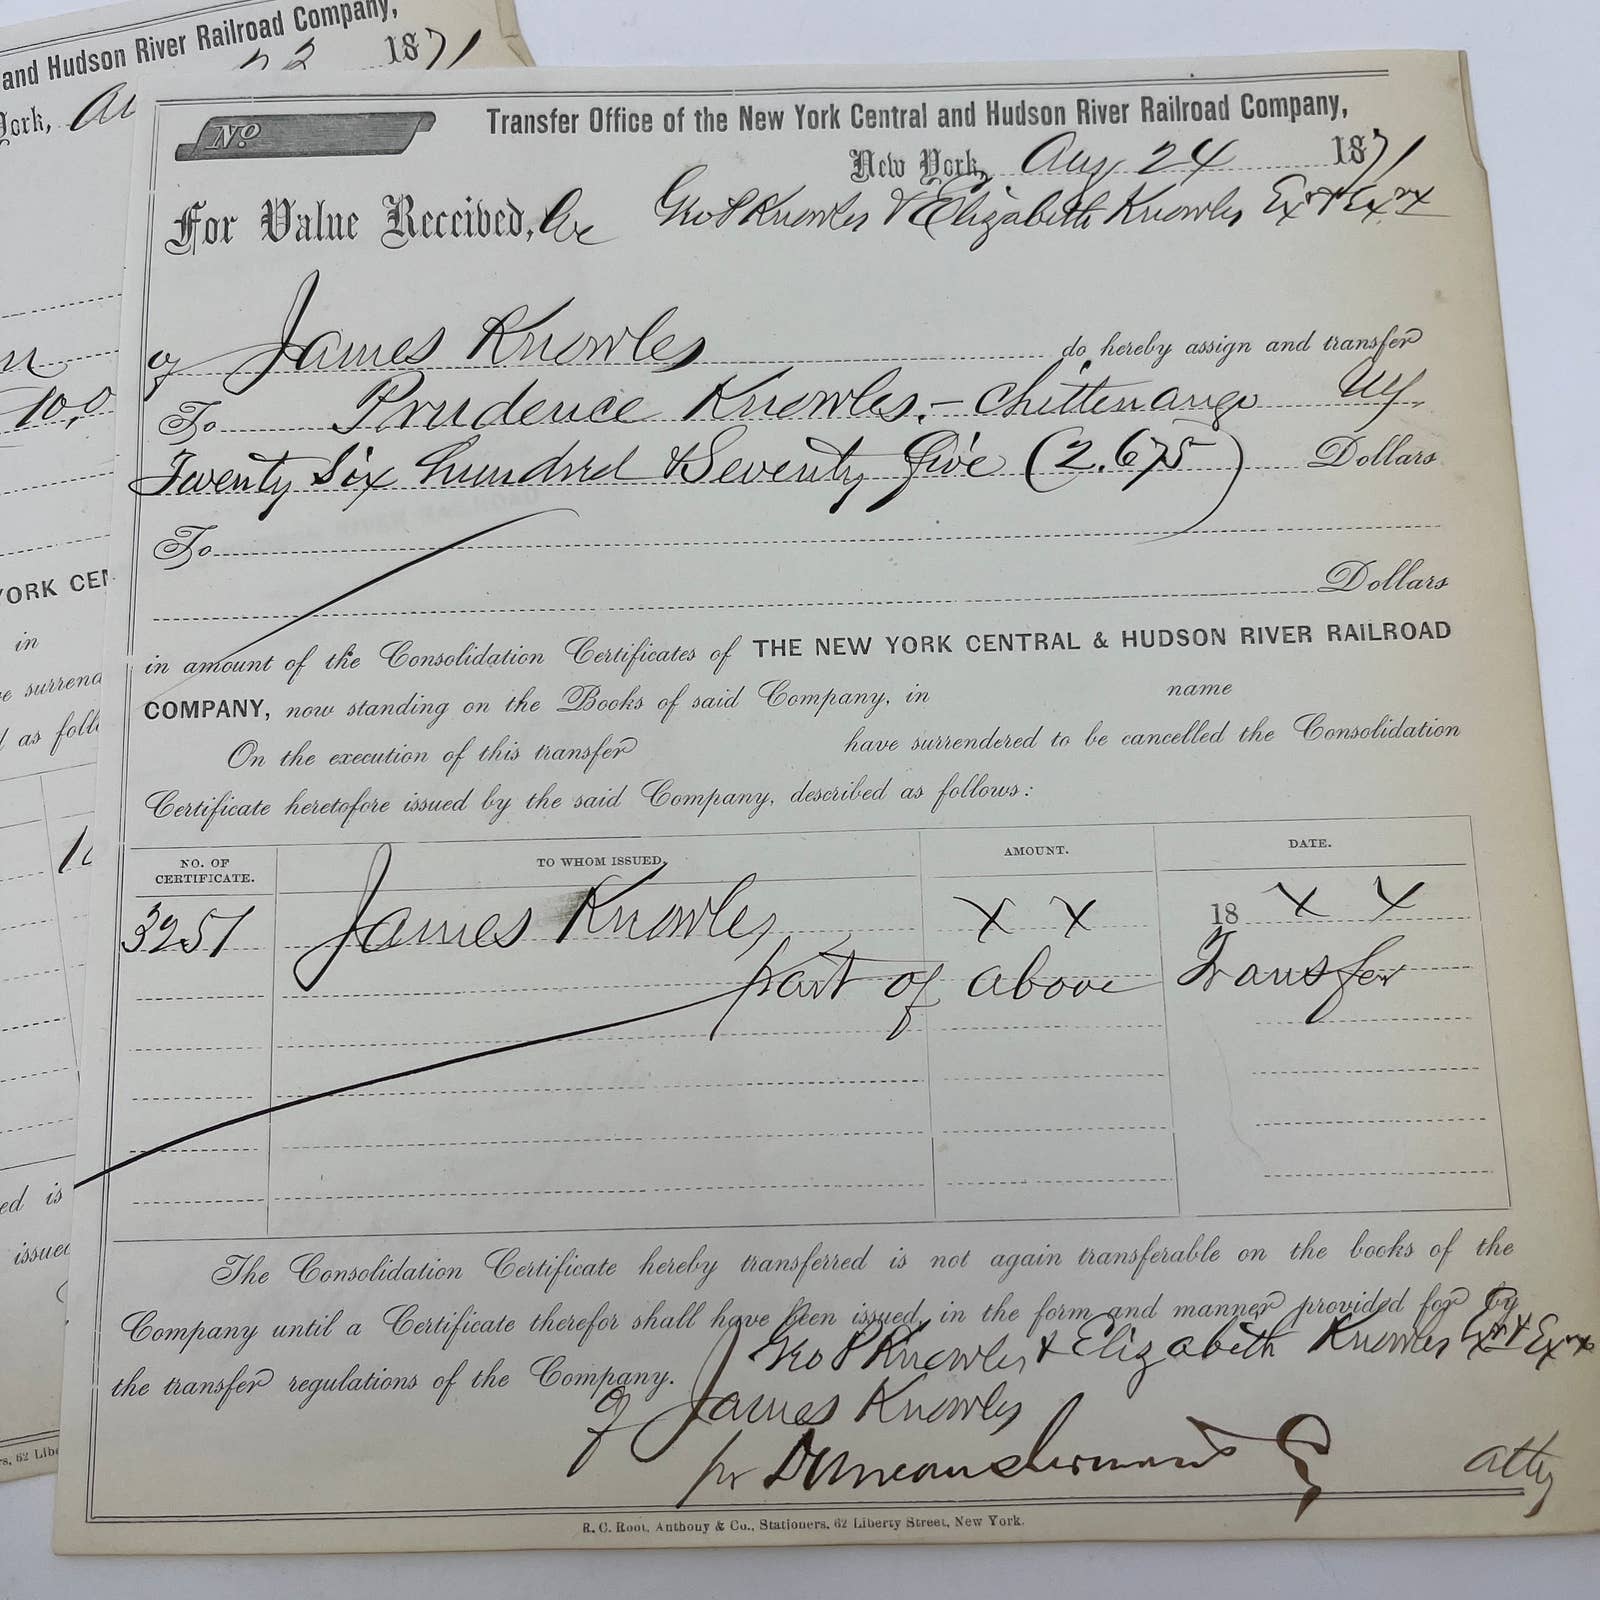 and Hudson River Railroad Company,
York,
1871
10,0
YORK CEN
in
as follo
ed is
issued
rs, 62 Libe
No
Transfer Office of the New York Central and Hudson River Railroad Company,
New York, Aug 24 1871
For Value Received, We Geo P Knowles & Elizabeth Knowles Exr & Exrx
of James Knowles do hereby assign and transfer
To Prudence Knowles, - Chittenango NY.
Twenty Six hundred & Seventy five (2.675) Dollars
To
Dollars
in amount of the Consolidation Certificates of THE NEW YORK CENTRAL & HUDSON RIVER RAILROAD
COMPANY, now standing on the Books of said Company, in name
On the execution of this transfer have surrendered to be cancelled the Consolidation
Certificate heretofore issued by the said Company, described as follows:
NO. OF CERTIFICATE. TO WHOM ISSUED. AMOUNT. DATE.
3251 James Knowles X X 18 X X
part of above Transfer
The Consolidation Certificate hereby transferred is not again transferable on the books of the
Company until a Certificate therefor shall have been issued, in the form and manner provided for by
the transfer regulations of the Company.
Geo P Knowles & Elizabeth Knowles Exr & Exrx
of James Knowles
pr atty
R. C. Root, Anthony & Co., Stationers, 62 Liberty Street, New York.